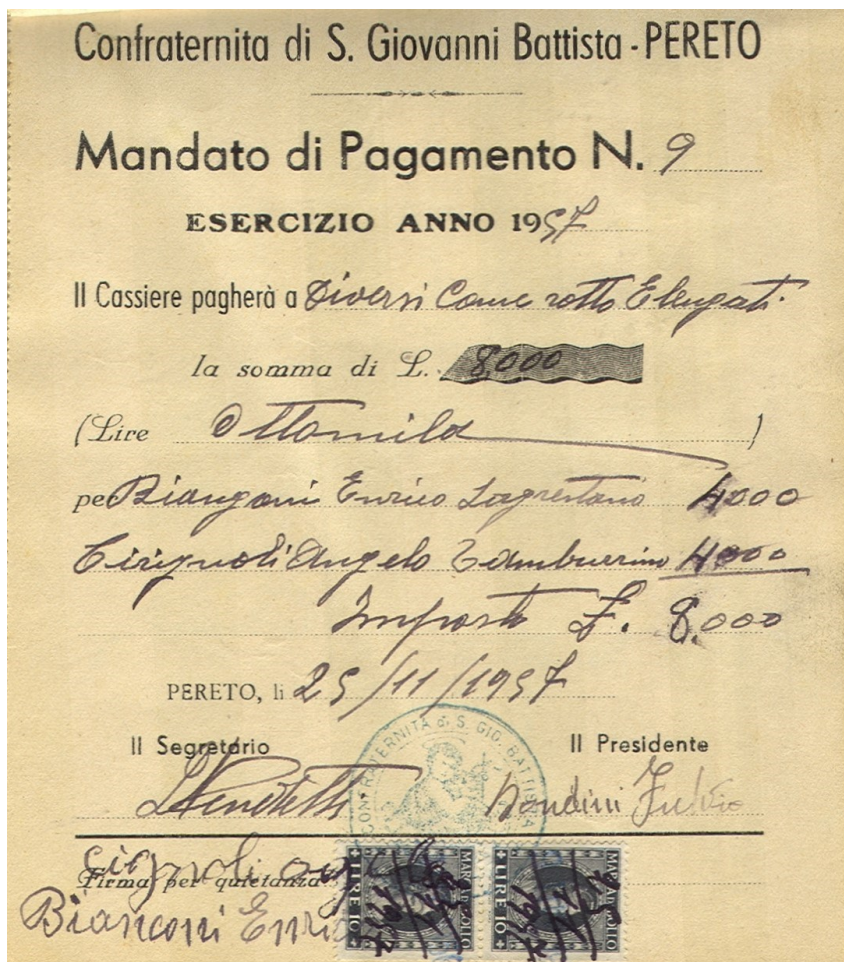 Confraternita di S. Giovanni Battista - PERETO
Mandato di Pagamento N. 9
ESERCIZIO ANNO 1957
Il Cassiere pagherà a Diversi Come sotto Elengati
la somma di L. 8,000
(Lire Ottomila )
per Biangoni Enrico Sagrestano 4000
Cirignoli Angelo Tamburrino 4000
Importo £. 8.000
PERETO, li 25/11/1957
CONFRATERNITA di S. GIO. BATTISTA
Il Segretario Il Presidente
Fulvio
Firma per quietanza
Bianconi Enri
LIRE 10 MARCA DA BOLLO LIRE 10 MARCA DA BOLLO